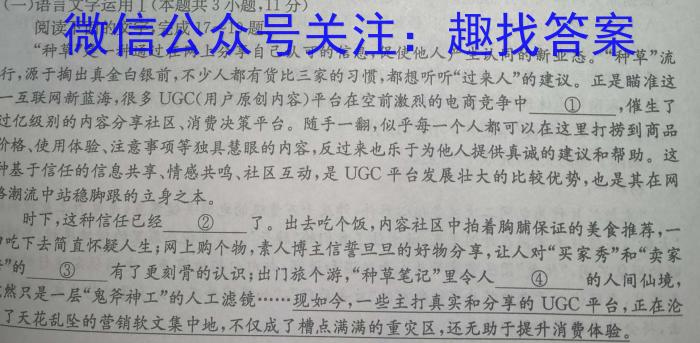 (一)语言文字运用Ⅰ(本题共3小题,11分)
微信公众号关注：趣找答案
阅读下面的文字,完成17~19题。
“种草”是一种通过在网上分享自己认可的信息,促使他人产生认同的新业态。“种草”流
行,源于掏出真金白银前,不少人都有货比三家的习惯,都想听听“过来人”的建议。正是瞄准这
一互联网新蓝海,很多UGC(用户原创内容)平台在空前激烈的电商竞争中 ① ,催生了
过亿级别的内容分享社区、消费决策平台。随手一翻,似乎每一个人都可以在这里打捞到商品
价格、使用体验、注意事项等独具慧眼的内容,反过来也乐于为他人提供真诚的建议和帮助。这
种基于信任的信息共享、情感共鸣、社区互动,是UGC平台发展壮大的比较优势,也是其在网
络潮流中站稳脚跟的立身之本。
时下,这种信任已经 ② 了。出去吃个饭,内容社区中拍着胸脯保证的美食推荐,一
口吃下去简直怀疑人生;网上购个物,素人博主信誓旦旦的好物分享,让人对“买家秀”和“卖家
秀”的 ③ 有了更刻骨的认识;出门旅个游,“种草笔记”里令人 ④ 的人间仙境,
竟然只是一层“鬼斧神工”的人工滤镜……现如今,一些主打真实和分享的UGC平台,正在沦
了天花乱坠的营销软文集中地,不仅成了槽点满满的重灾区,还无助于提升消费体验。